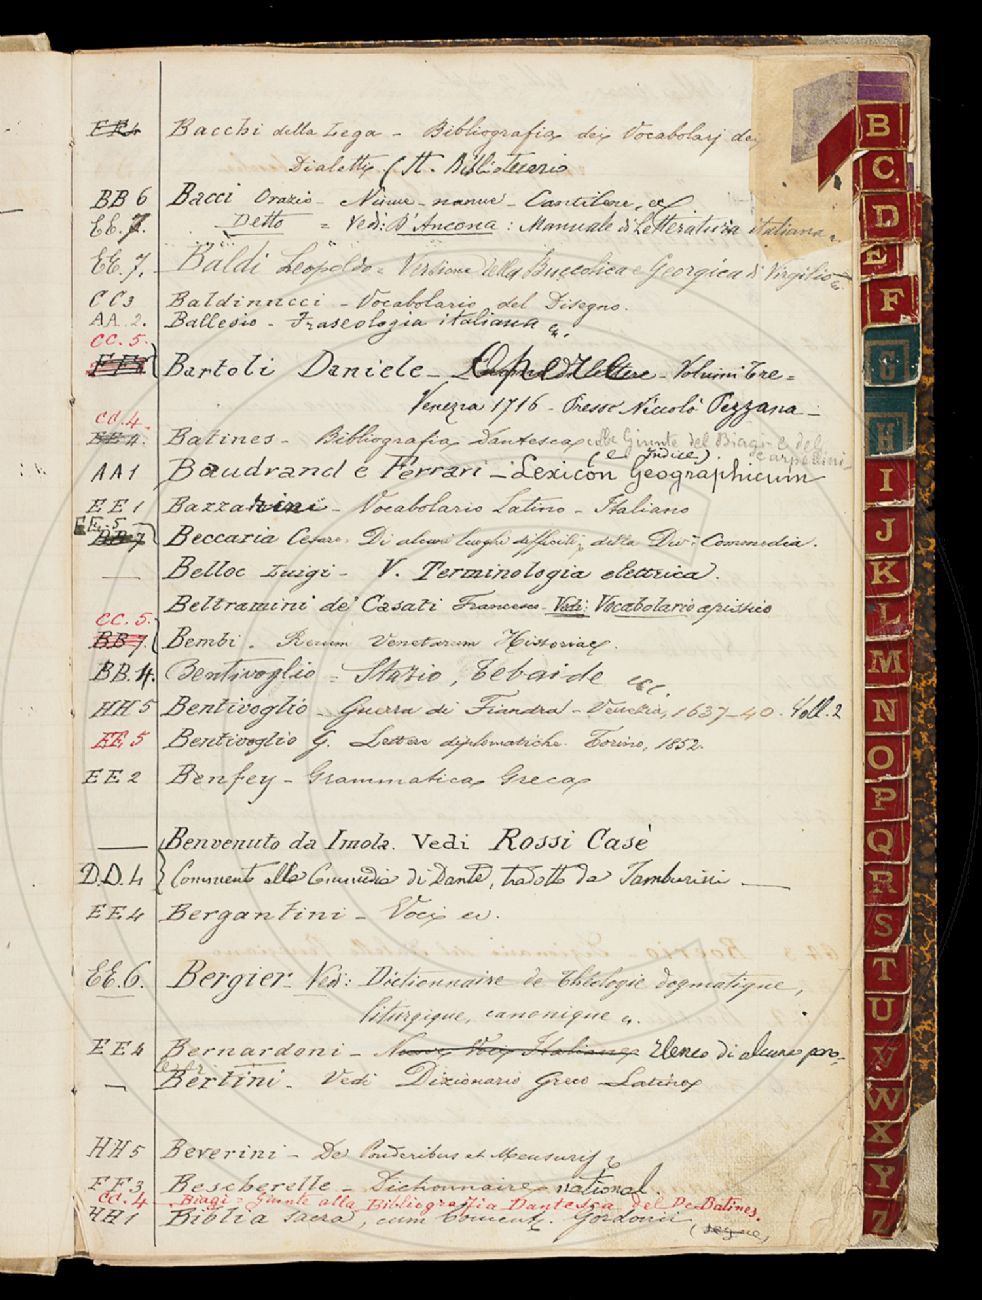 EE4 Bacchi della Lega - Bibliografia dei Vocabolarj de
Dialetti (It. Bibliotecario
BB 6 Bacci Orazio - Ninne-nanne - Cantilene, ec
EE. 7. Detto = Vedi: D'Ancona: Manuale di Letteratura italiana
EE. 7. Baldi Leopoldo = Versione della Buccolica e Georgica di Virgilio
CC3 Baldinucci - Vocabolario del Disegno.
AA 2. Ballesio - Fraseologia italiana
CC. 5.
Bartoli Daniele - Opere - Volumi Tre =
Venezia 1716 - Presso Niccolò Pezzana -
CC. 4.
EE 4. Batines - Bibliografia Dantesca colle Giunte del Biagi e del
(e Indice). Carpellini
AA1 Baudrand e Ferrari - Lexicon Geographicum
EE 1 Bazzarini - Vocabolario Latino - Italiano
EE. 5
BB 7 Beccaria Cesare. Di alcuni luoghi difficili della Div. Commedia.
— Belloc Luigi - V. Terminologia elettrica.
Beltramini de' Casati Francesco - Vedi: Vocabolario apistico
CC. 5.
BB 7. Bembi. Rerum Venetarum Historiae.
BB. 4. Bentivoglio = Stazio, Tebaide ecc.
HH 5 Bentivoglio - Guerra di Fiandra - Venezia, 1637-40. Voll. 2
EE 5 Bentivoglio G. Lettere diplomatiche. Torino, 1852.
EE 2 Benfey - Grammatica Greca
— Benvenuto da Imola. Vedi Rossi Casè
D.D. 4 Commento alla Commedia di Dante, tradotto da Tamburini —
EE 4 Bergantini - Voci ec.
EE. 6. Bergier - Vedi: Dictionnaire de Théologie dogmatique,
liturgique, canonique
EE 4 Bernardoni - Nuove Voci Italiane Elenco di alcune paro-
— Bertini - Vedi Dizionario Greco - Latino
HH 5 Beverini - De Ponderibus et Mensuris
FF 3 Bescherelle - Dictionnaire national.
CC. 4 - Biagi = Giunte alla Bibliografia Dantesca del De Batines.
HH 1 Biblia sacra, cum Coment. Gordonii
(segue)
B
C
D
E
F
G
H
I
J
K
L
M
N
O
P
Q
R
S
T
U
V
W
X
Y
Z